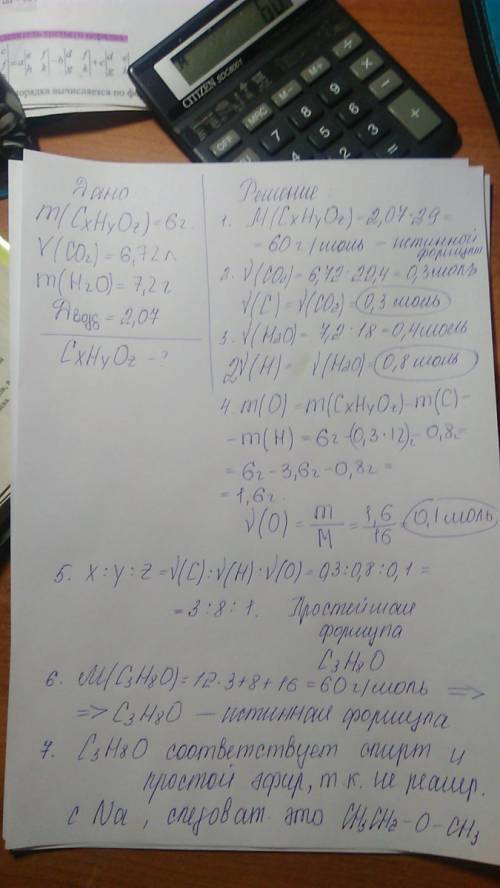 CITIZEN
OFF
MRC
M−
M+
÷
7
8
9
×
4
5
6
−
1
2
3
+
0
=
Дано
m(CxHyOz)=6г.
V(CO2)=6,72л
m(H2O)=7,2г
Двозд=2,07
CxHyOz-?
Решение:
1. M(CxHyOz)=2,07·29=
=60г/моль - истинной
формулы
2. ν(CO2)=6,72:22,4=0,3моль
ν(C)=ν(CO2)=0,3 моль
3. ν(H2O)=7,2:18=0,4моль
2ν(H)= ν(H2O)=0,8 моль
4. m(O)=m(CxHyOz)-m(C)-
-m(H)=6г-(0,3·12)г-0,8г=
=6г-3,6г-0,8г=
=1,6г.
ν(O)=m/M=1,6/16=0,1 моль
5. x:y:z=ν(C):ν(H):ν(O)=0,3:0,8:0,1=
=3:8:1. Простейшая
формула
C3H8O
6. M(C3H8O)=12·3+8+16=60г/моль =>
=> C3H8O — истинная формула
7. C3H8O соответствует спирт и
простой эфир, т.к. не реагир.
с Na, следоват. это CH3CH2-O-CH3